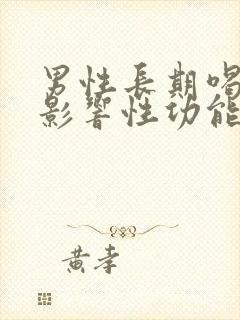 男性長期喝
影響性功能
黃孝